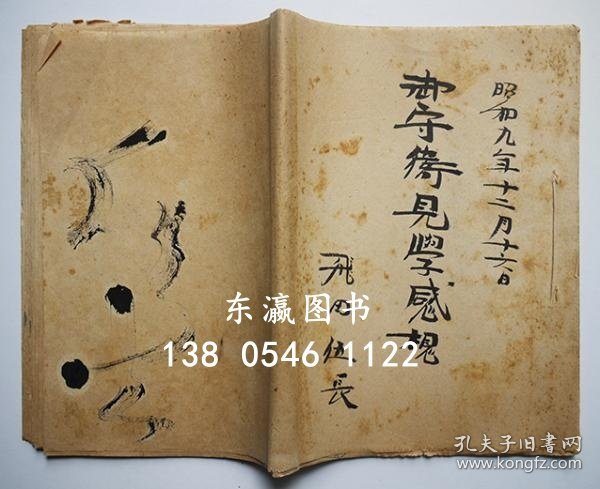 昭和九年十二月十六日
御守衛見学感想
飛田伍長
东瀛图书
138 0546 1122
孔夫子旧书网
www.kongfz.com